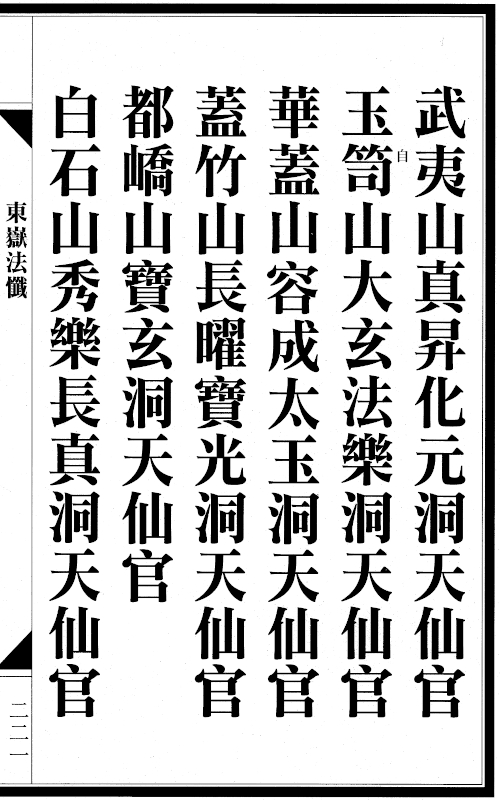 武夷山真昇化元洞天仙官
玉笥山大玄法樂洞天仙官
自
華蓋山容成太玉洞天仙官
蓋竹山長曜寶光洞天仙官
都嶠山寶玄洞天仙官
白石山秀樂長真洞天仙官
東嶽法懺
二二一